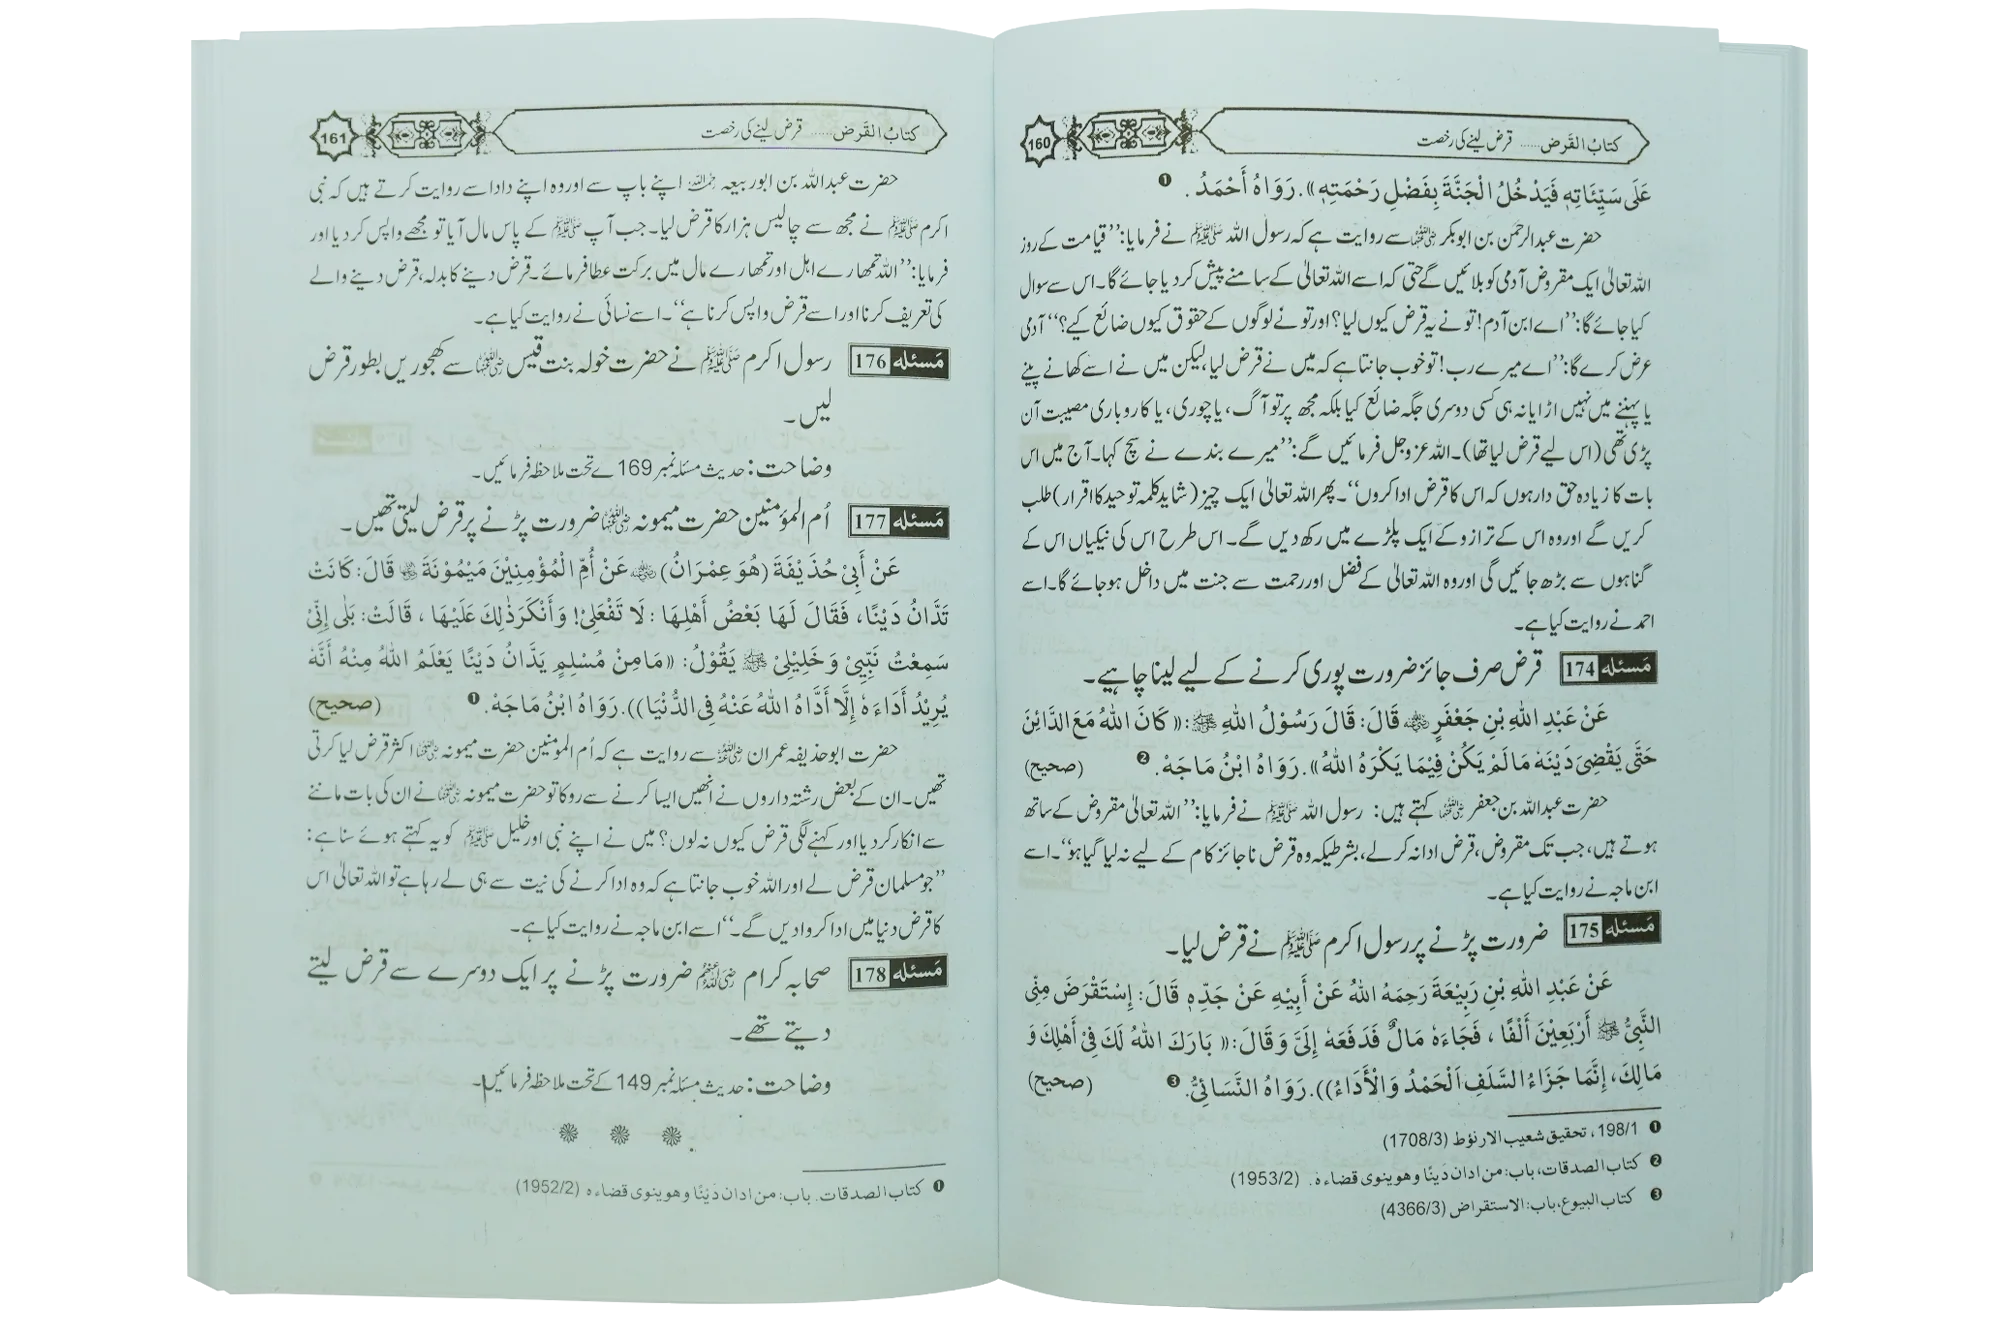 كتابُ القَرض...... قرض لینے کی رخصت
160
عَلَى سَيِّئَاتِهٖ فَيَدْخُلُ الْجَنَّةَ بِفَضْلِ رَحْمَتِهٖ)). رَوَاهُ أَحْمَدُ. ❶
حضرت عبدالرحمٰن بن ابوبکر رضی اللہ عنہما سے روایت ہے کہ رسول اللہ ﷺ نے فرمایا: ’’قیامت کے روز
اللہ تعالیٰ ایک مقروض آدمی کو بلائیں گے حتی کہ اسے اللہ تعالیٰ کے سامنے پیش کر دیا جائے گا۔ اس سے سوال
کیا جائے گا: ’’اے ابن آدم! تو نے یہ قرض کیوں لیا؟ اور تو نے لوگوں کے حقوق کیوں ضائع کیے؟‘‘ آدمی
عرض کرے گا: ’’اے میرے رب! تو خوب جانتا ہے کہ میں نے قرض لیا، لیکن میں نے اسے کھانے پینے
یا پہننے میں نہیں اڑایا نہ ہی کسی دوسری جگہ ضائع کیا بلکہ مجھ پر تو آگ، یا چوری، یا کاروباری مصیبت آن
پڑی تھی (اس لیے قرض لیا تھا)۔ اللہ عزوجل فرمائیں گے: ’’میرے بندے نے سچ کہا۔ آج میں اس
بات کا زیادہ حق دار ہوں کہ اس کا قرض ادا کروں‘‘۔ پھر اللہ تعالیٰ ایک چیز (شاید کلمہ توحید کا اقرار) طلب
کریں گے اور وہ اس کے ترازو کے ایک پلڑے میں رکھ دیں گے۔ اس طرح اس کی نیکیاں اس کے
گناہوں سے بڑھ جائیں گی اور وہ اللہ تعالیٰ کے فضل اور رحمت سے جنت میں داخل ہو جائے گا۔ اسے
احمد نے روایت کیا ہے۔
مَسئله 174 قرض صرف جائز ضرورت پوری کرنے کے لیے لینا چاہیے۔
عَنْ عَبْدِ اللهِ بْنِ جَعْفَرٍ رضی اللہ عنہ قَالَ: قَالَ رَسُوْلُ اللهِ ﷺ: ((كَانَ اللهُ مَعَ الدَّائِنِ
حَتَّى يَقْضِىَ دَيْنَهٗ مَالَمْ يَكُنْ فِيْمَا يَكْرَهُ اللهُ)). رَوَاهُ ابْنُ مَاجَهْ. ❷ (صحيح)
حضرت عبداللہ بن جعفر رضی اللہ عنہما کہتے ہیں: رسول اللہ ﷺ نے فرمایا: ’’اللہ تعالیٰ مقروض کے ساتھ
ہوتے ہیں، جب تک مقروض، قرض ادا نہ کر لے، بشرطیکہ وہ قرض ناجائز کام کے لیے نہ لیا گیا ہو‘‘۔ اسے
ابن ماجہ نے روایت کیا ہے۔
مَسئله 175 ضرورت پڑنے پر رسول اکرم ﷺ نے قرض لیا۔
عَنْ عَبْدِ اللهِ بْنِ رَبِيْعَةَ رَحِمَهُ اللهُ عَنْ أَبِيْهِ عَنْ جَدِّهٖ قَالَ: إِسْتَقْرَضَ مِنِّى
النَّبِيُّ ﷺ أَرْبَعِيْنَ أَلْفًا، فَجَاءَهٗ مَالٌ فَدَفَعَهٗ إِلَىَّ وَقَالَ: ((بَارَكَ اللهُ لَكَ فِىْ أَهْلِكَ وَ
مَالِكَ، إِنَّمَا جَزَاءُ السَّلَفِ اَلْحَمْدُ وَالْأَدَاءُ)). رَوَاهُ النَّسَائِيُّ. ❸ (صحيح)
❶ 198/1، تحقيق شعيب الارنؤط (1708/3)
❷ كتاب الصدقات، باب: من ادان دَينًا وهو ينوى قضاءه. (1953/2)
❸ كتاب البيوع، باب: الاستقراض (4366/3)
كتابُ القَرض...... قرض لینے کی رخصت
161
حضرت عبداللہ بن ابو ربیعہ رحمہ اللہ اپنے باپ سے اور وہ اپنے دادا سے روایت کرتے ہیں کہ نبی
اکرم ﷺ نے مجھ سے چالیس ہزار کا قرض لیا۔ جب آپ ﷺ کے پاس مال آیا تو مجھے واپس کر دیا اور
فرمایا: ’’اللہ تمھارے اہل اور تمھارے مال میں برکت عطا فرمائے۔ قرض دینے کا بدلہ، قرض دینے والے
کی تعریف کرنا اور اسے قرض واپس کرنا ہے‘‘۔ اسے نسائی نے روایت کیا ہے۔
مَسئله 176 رسول اکرم ﷺ نے حضرت خولہ بنت قیس رضی اللہ عنہا سے کھجوریں بطور قرض
لیں۔
وضاحت: حدیث مسئلہ نمبر 169 ے تحت ملاحظہ فرمائیں۔
مَسئله 177 اُم المؤمنین حضرت میمونہ رضی اللہ عنہا ضرورت پڑنے پر قرض لیتی تھیں۔
عَنْ أَبِىْ حُذَيْفَةَ (هُوَ عِمْرَانُ) رضی اللہ عنہ عَنْ أُمِّ الْمُؤْمِنِيْنَ مَيْمُوْنَةَ رضی اللہ عنہا قَالَ: كَانَتْ
تَدَّانُ دَيْنًا، فَقَالَ لَهَا بَعْضُ أَهْلِهَا: لَا تَفْعَلِىْ! وَأَنْكَرَ ذٰلِكَ عَلَيْهَا، قَالَتْ: بَلٰى إِنِّىْ
سَمِعْتُ نَبِّيِىْ وَخَلِيْلِىْ ﷺ يَقُوْلُ: ((مَامِنْ مُسْلِمٍ يَدَّانُ دَيْنًا يَعْلَمُ اللهُ مِنْهُ أَنَّهٗ
يُرِيْدُ أَدَاءَهٗ إِلَّا أَدَّاهُ اللهُ عَنْهُ فِى الدُّنْيَا)). رَوَاهُ ابْنُ مَّاجَهْ. ❶ (صحيح)
حضرت ابوحذیفہ عمران رضی اللہ عنہ سے روایت ہے کہ اُم المومنین حضرت میمونہ رضی اللہ عنہا اکثر قرض لیا کرتی
تھیں۔ ان کے بعض رشتہ داروں نے انھیں ایسا کرنے سے روکا تو حضرت میمونہ رضی اللہ عنہا نے ان کی بات ماننے
سے انکار کر دیا اور کہنے لگی قرض کیوں نہ لوں؟ میں نے اپنے نبی اور خلیل ﷺ کو یہ کہتے ہوئے سنا ہے:
’’جو مسلمان قرض لے اور اللہ خوب جانتا ہے کہ وہ ادا کرنے کی نیت سے ہی لے رہا ہے تو اللہ تعالیٰ اس
کا قرض دنیا میں ادا کروا دیں گے۔‘‘ اسے ابن ماجہ نے روایت کیا ہے۔
مَسئله 178 صحابہ کرام رضی اللہ عنہم ضرورت پڑنے پر ایک دوسرے سے قرض لیتے
دیتے تھے۔
وضاحت: حدیث مسئلہ نمبر 149 کے تحت ملاحظہ فرمائیں۔
❶ كتاب الصدقات. باب: من ادان دَيْنًا وهو ينوى قضاءه (1952/2)